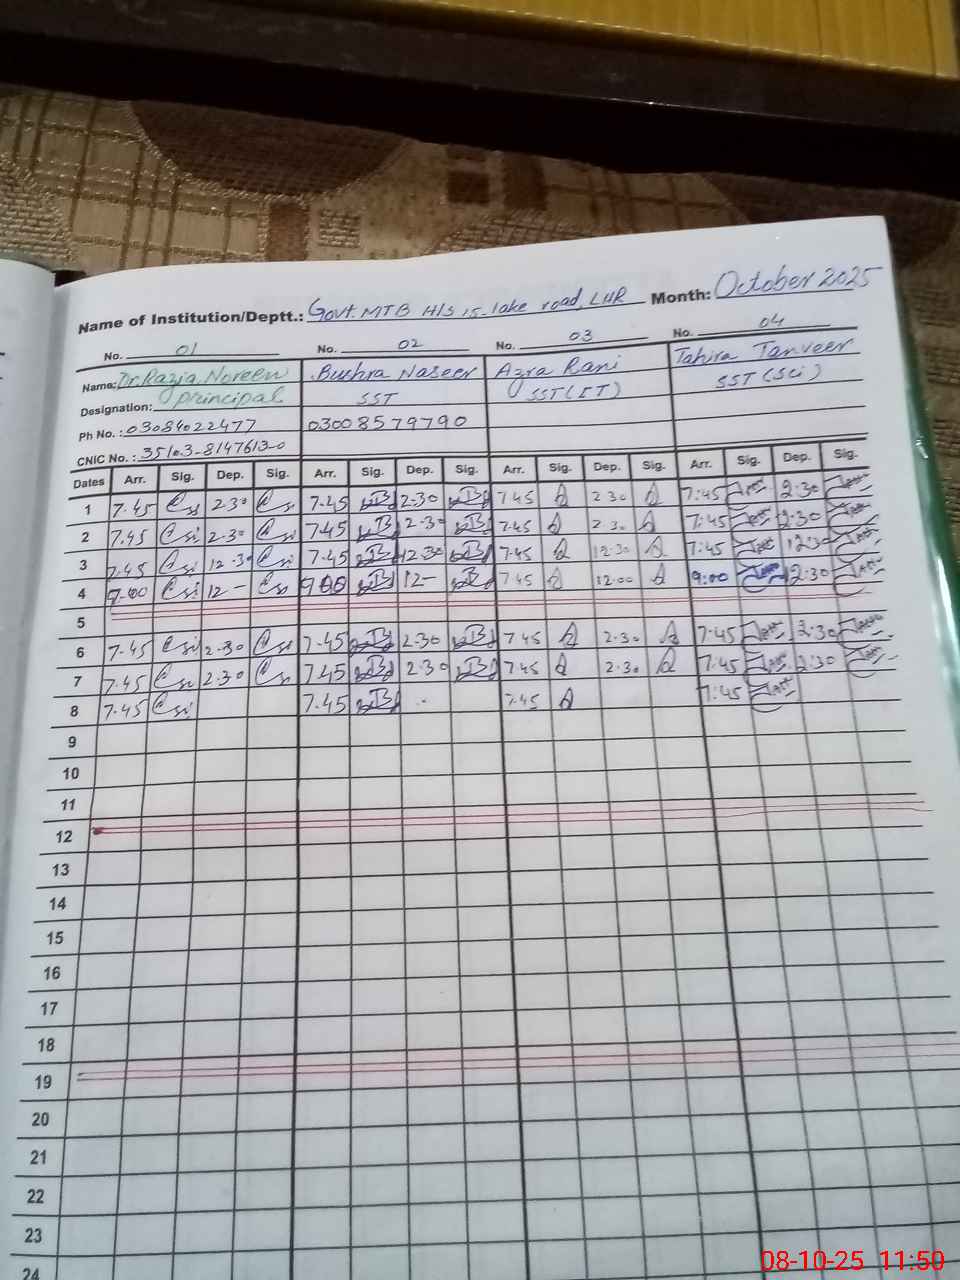 Name of Institution/Deptt.: Govt. MTB H/S 15-lake road, LHR Month: October 2025
No. 01 No. 02 No. 03 No. 04
Name: Dr. Razia Noreen Bushra Naseer Azra Rani Tahira Tanveer
Designation: principal SST SST (IT) SST (Sci)
Ph No.: 03084022477 03008579790
CNIC No.: 35103-8147613-0
Dates Arr. Sig. Dep. Sig. Arr. Sig. Dep. Sig. Arr. Sig. Dep. Sig. Arr. Sig. Dep. Sig.
1 7.45 2.30 7.45 2.30 7.45 2.30 7:45 2:30
2 7.45 2.30 7.45 2.30 7.45 2.30 7:45 2:30
3 7.45 12.30 7.45 12.30 7.45 12.30 7:45 12:30
4 9.00 12- 9.00 12- 7.45 12.00 9:00 12:30
5
6 7.45 2.30 7.45 2.30 7.45 2.30 7:45 2:30
7 7.45 2.30 7.45 2.30 7.45 2.30 7:45 2:30
8 7.45 7.45 7.45 7:45
9
10
11
12
13
14
15
16
17
18
19
20
21
22
23
24
08-10-25 11:50